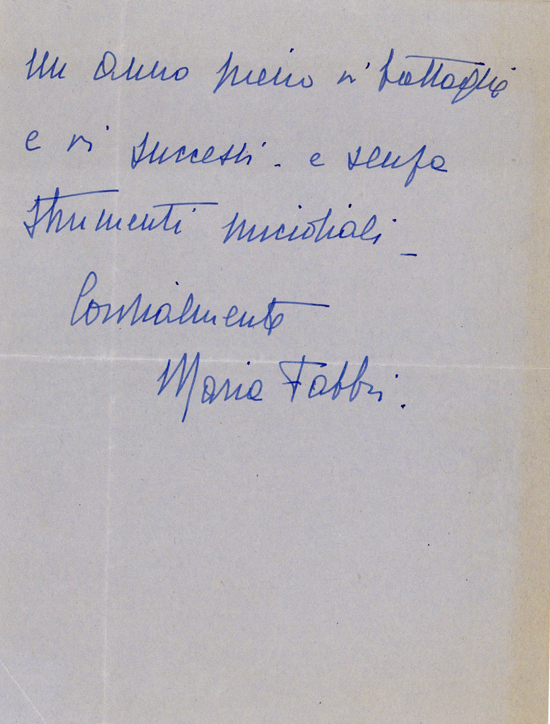 un anno pieno di battaglie
e di successi - e senza
strumenti micidiali -
Cordialmente
Maria Fabbri.